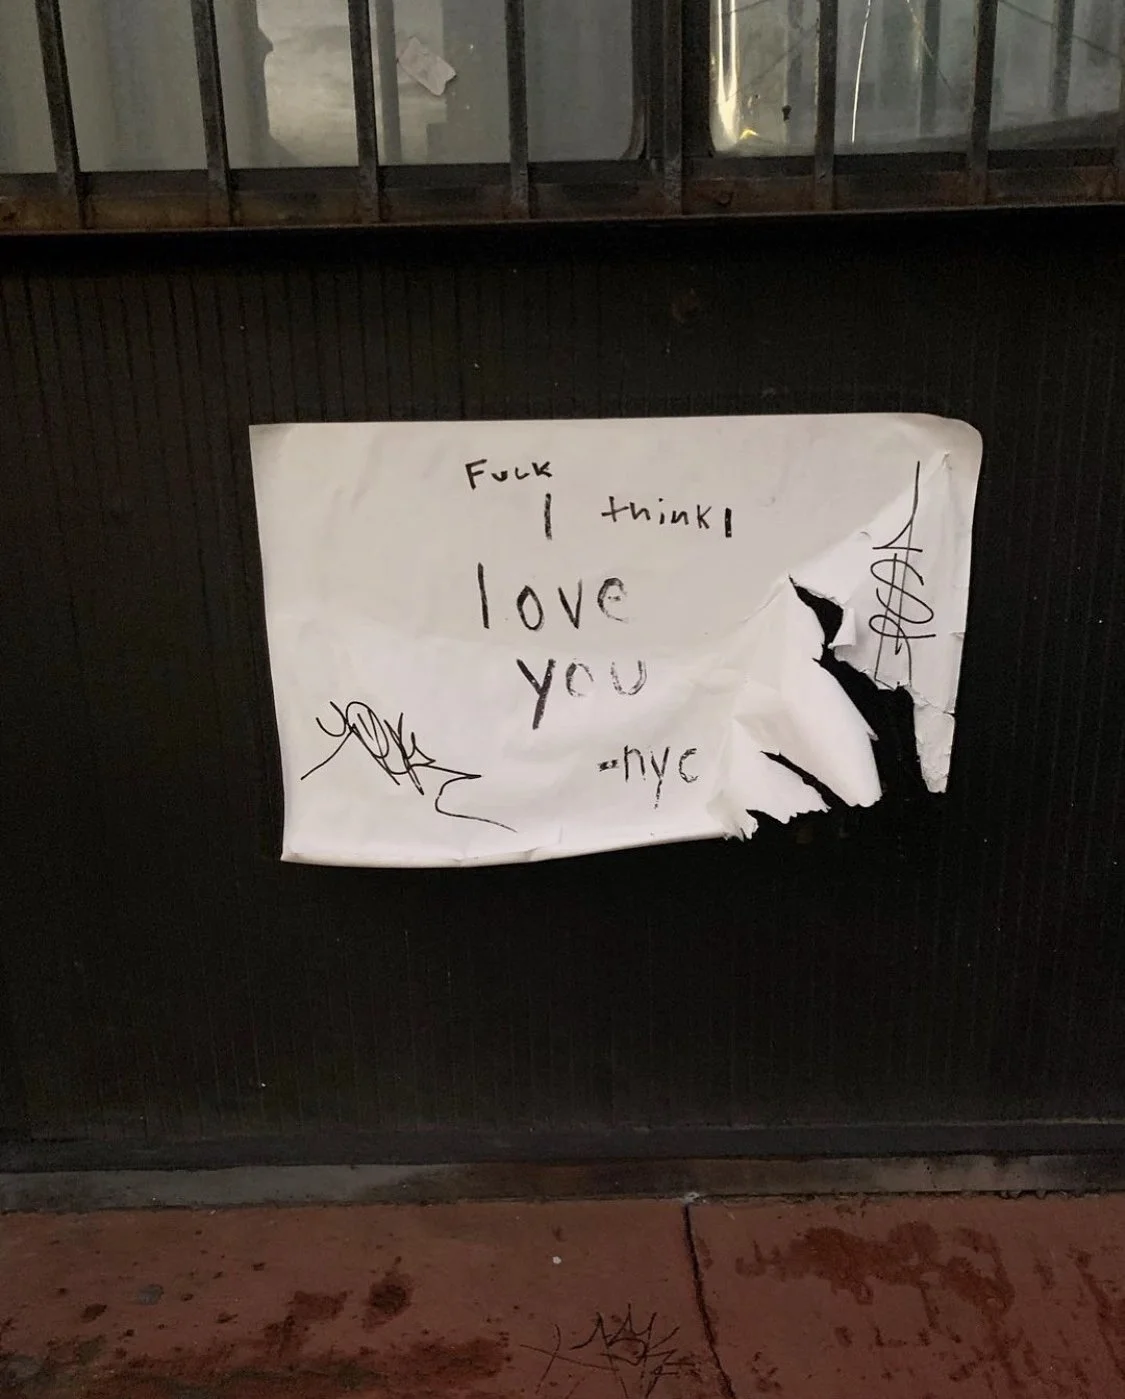 Fuck
I think I
love
you
-nyc